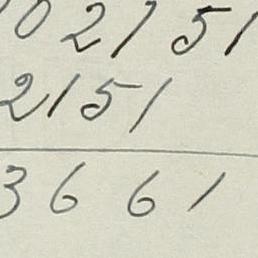 0 2 1 5 1
2 1 5 1
3 6 6 1